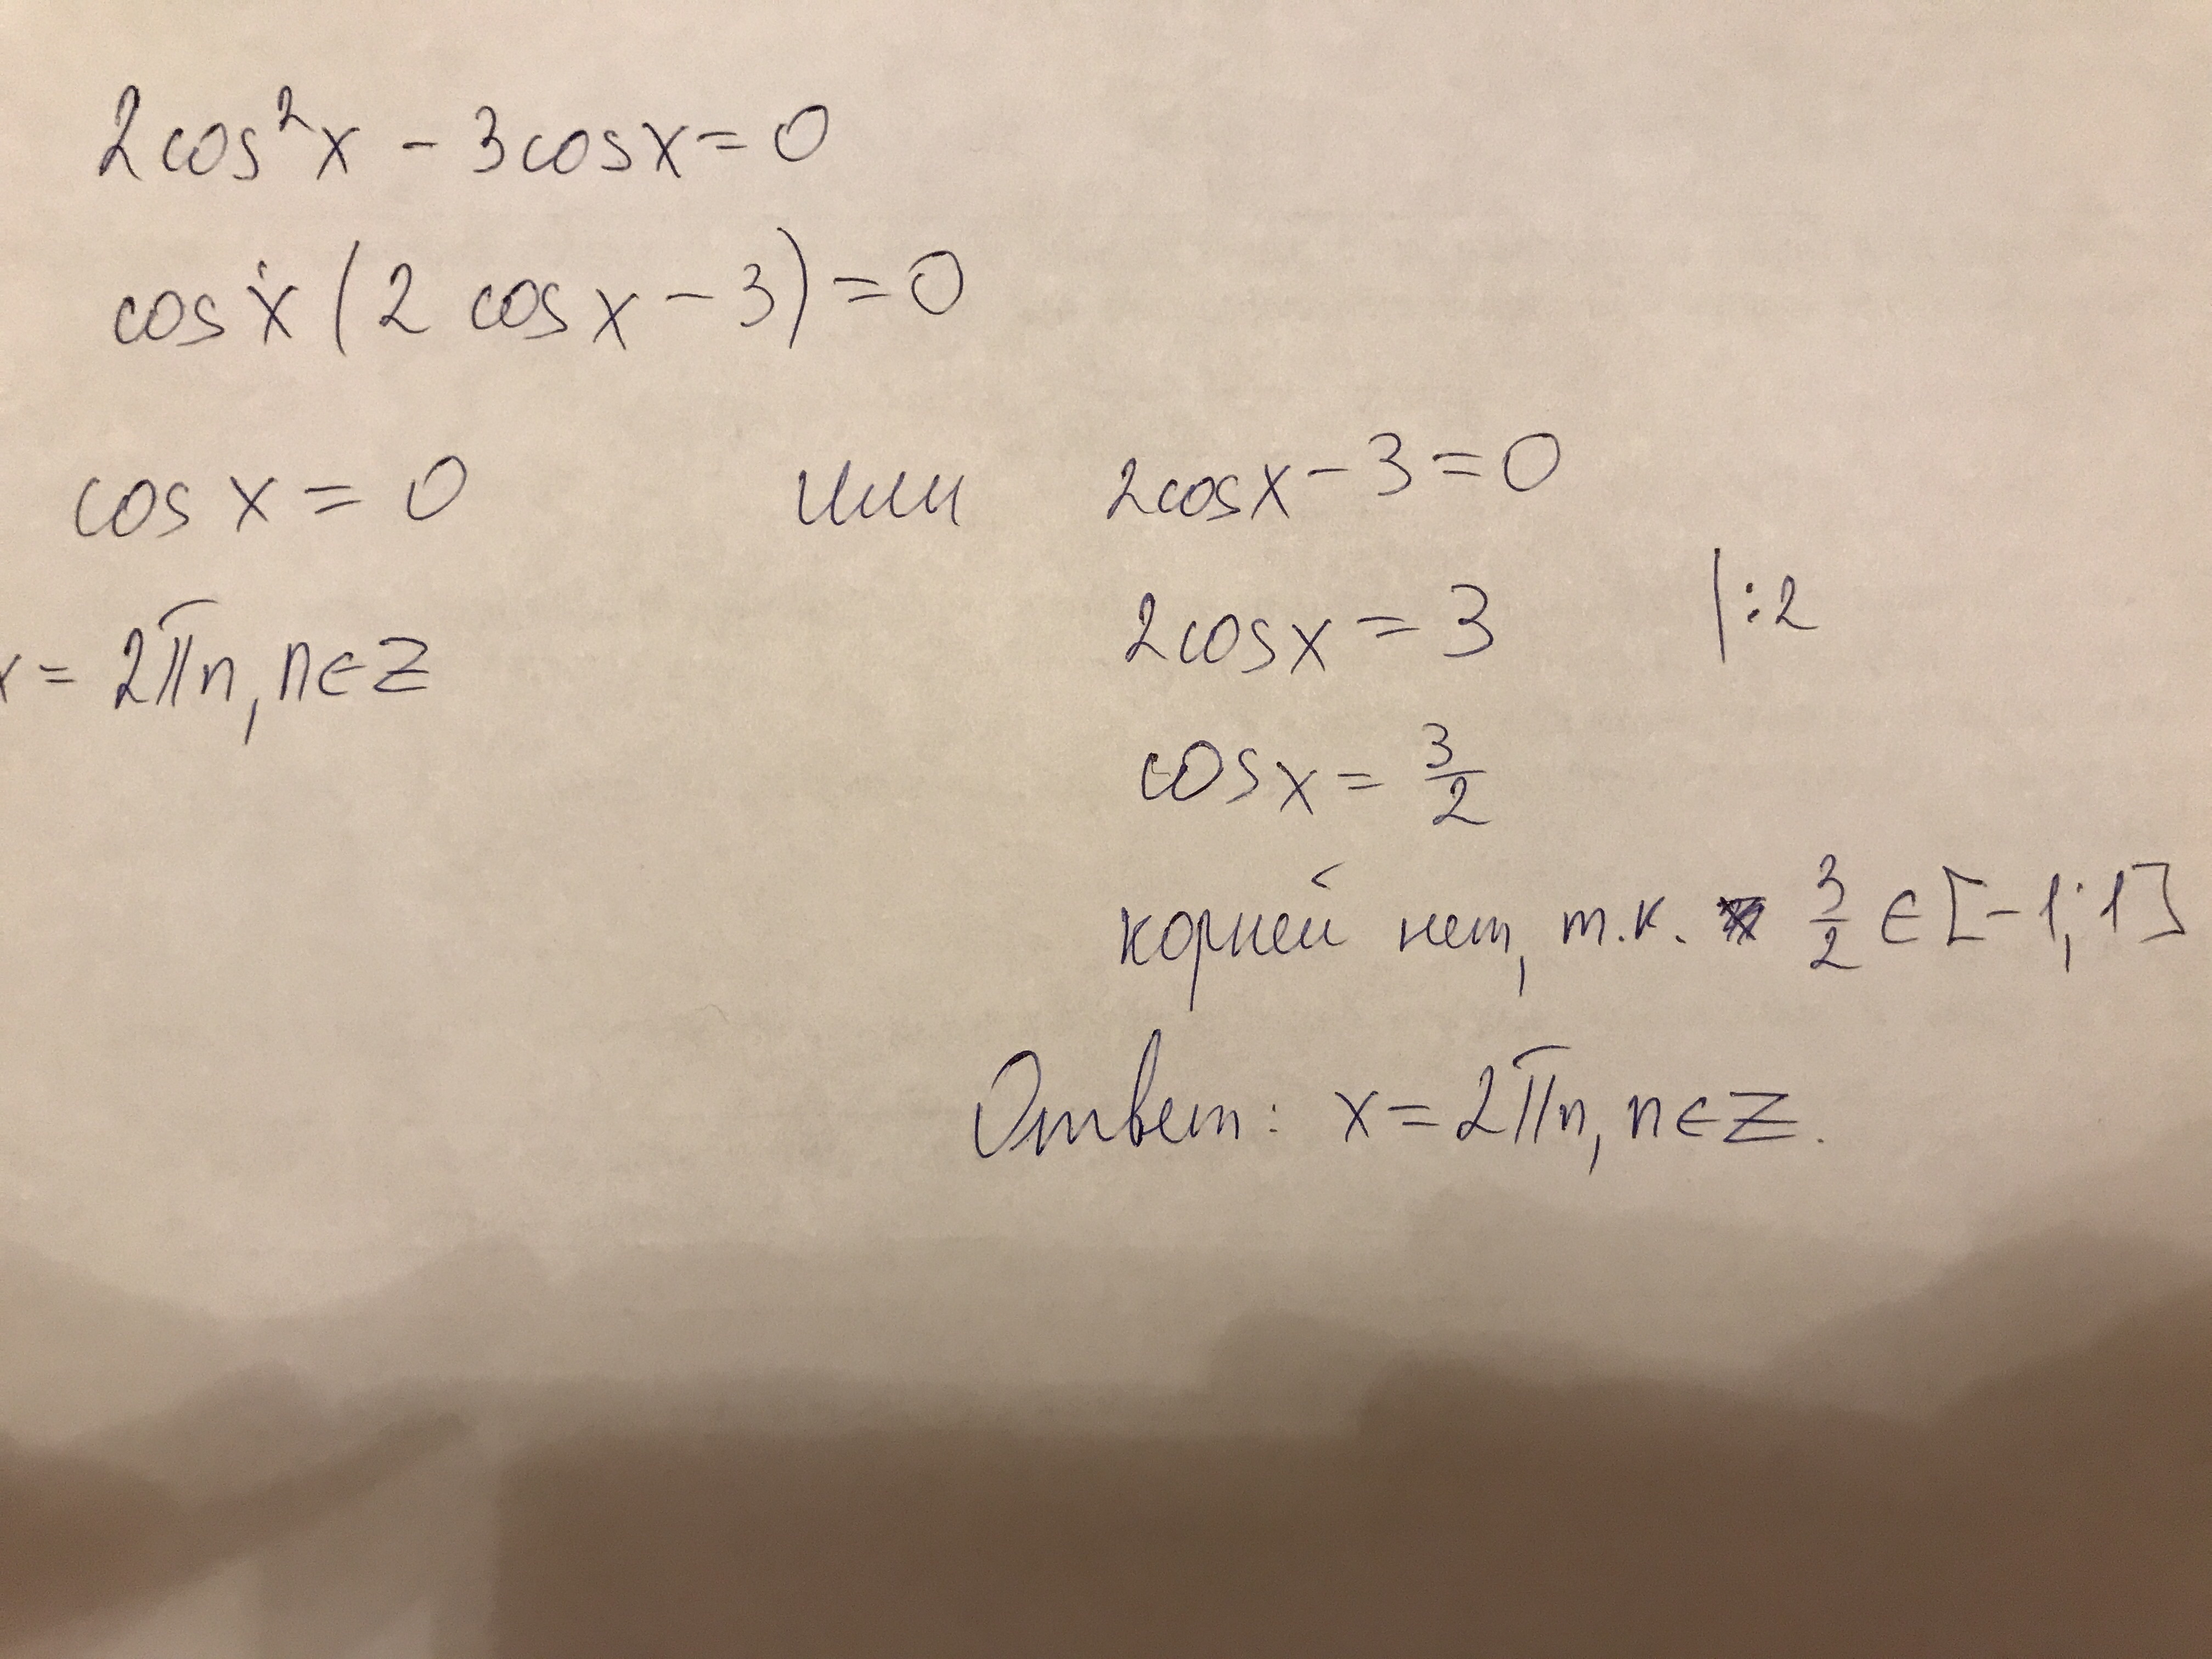 2cos²x - 3cosx = 0
cos x (2 cos x - 3) = 0
cos x = 0 или 2cosx - 3 = 0
x = 2πn, n∈Z
2cosx = 3 |:2
cosx = 3/2
корней нет, т.к. 3/2 ∈ [-1; 1]
Ответ: x = 2πn, n∈Z.